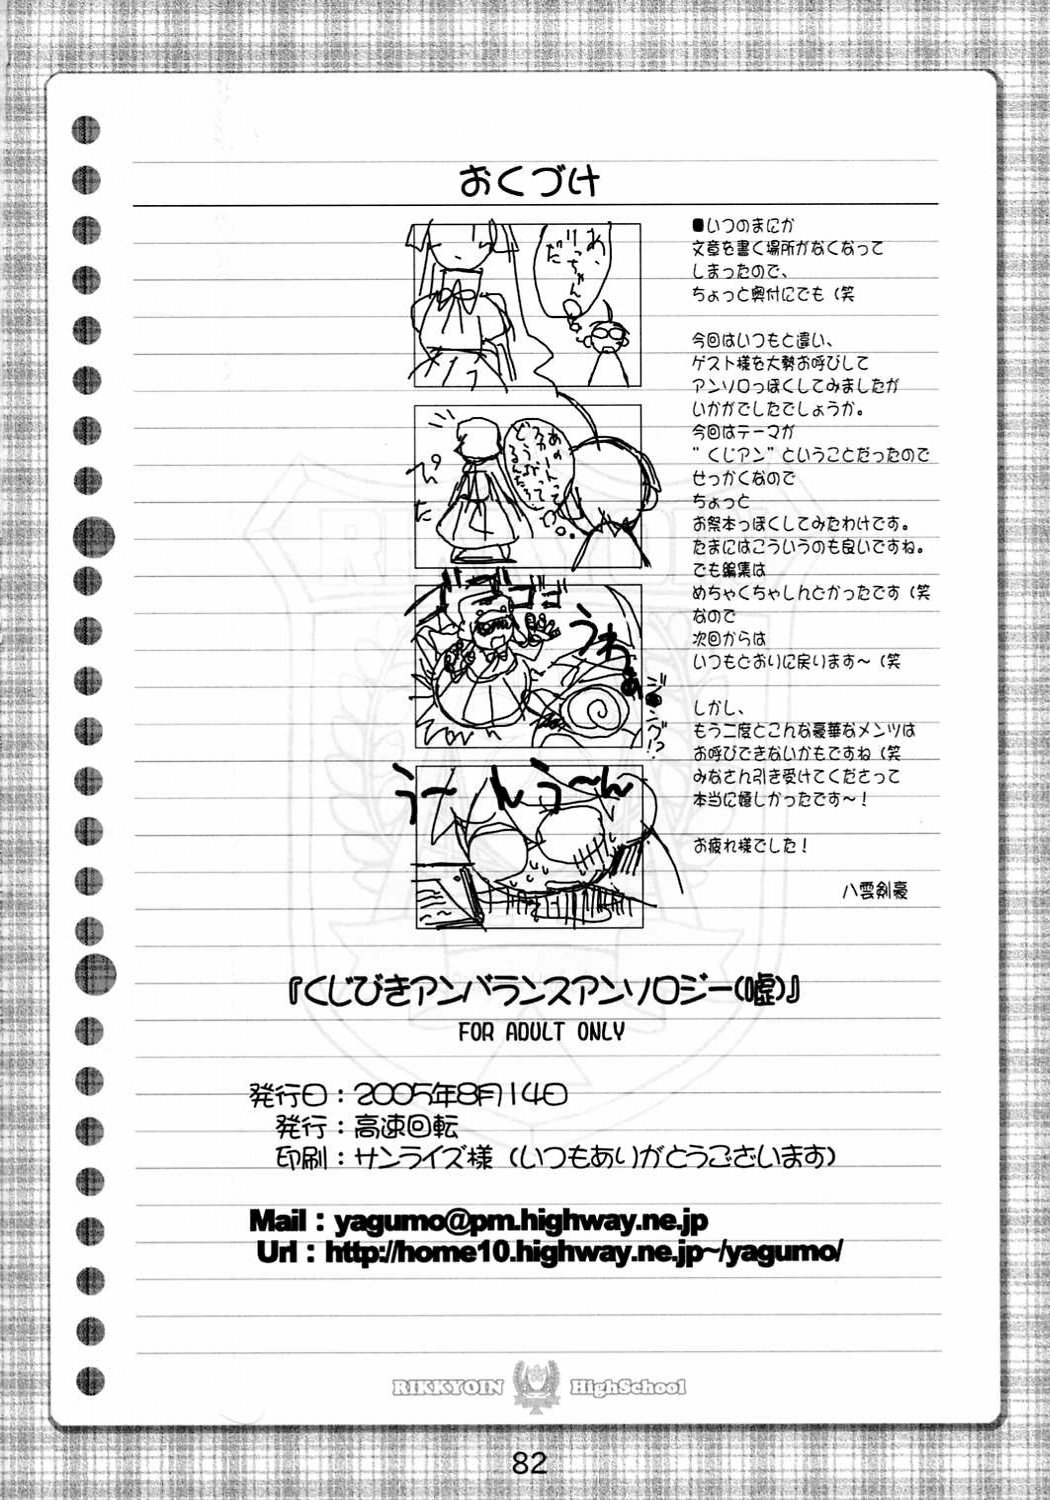 おくづけ
■いつのまにか
文章を書く場所がなくなって
しまったので、
ちょっと奥付にでも（笑
今回はいつもと違い、
ゲスト様を大勢お呼びして
アンソロっぽくしてみましたが
いかがでしたでしょうか。
今回はテーマが
"くじアン"ということだったので
せっかくなので
ちょっと
お祭本っぽくしてみたわけです。
たまにはこういうのも良いですね。
でも編集は
めちゃくちゃしんどかったです（笑
なので
次回からは
いつもとおりに戻ります～（笑
しかし、
もう二度とこんな豪華なメンツは
お呼びできないかもですね（笑
みなさん引き受けてくださって
本当に嬉しかったです～！
お疲れ様でした！
八雲剣豪
あ、
りっちゃん
だ
あのーんって
どうなって
るんだろ?
ぴた
ゴゴゴゴ
うわぁぁ
うーんうーん
『くじびきアンバランスアンソロジー(嘘)』
FOR ADULT ONLY
発行日：2005年8月14日
発行：高速回転
印刷：サンライズ様（いつもありがとうございます）
Mail：yagumo@pm.highway.ne.jp
Url：http://home10.highway.ne.jp~/yagumo/
RIKKYOIN HighSchool
82